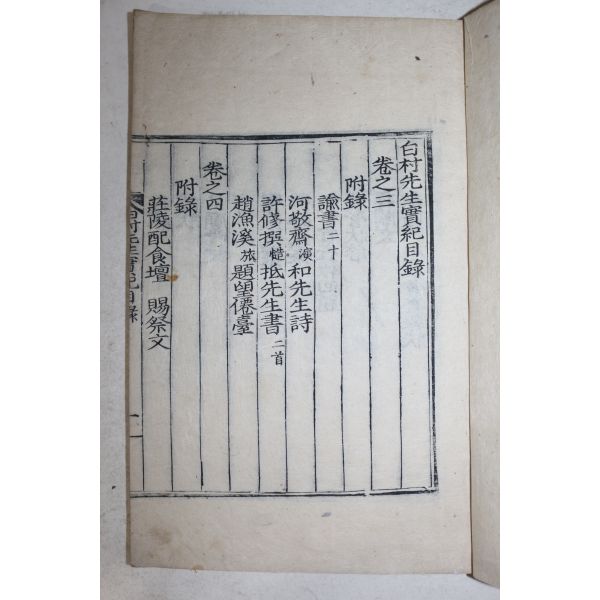 白村先生實紀目錄
卷之三
附錄
諭書二十
河敬齋演和先生詩
許修撰慥抵先生書二首
趙漁溪旅題望僊臺
卷之四
附錄
莊陵配食壇 賜祭文
白村先生實紀目錄